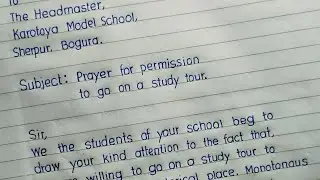 The Headmaster,
Karotoya Model School,
Sherpur, Bogura.
Subject: Prayer for permission
to go on a study tour.
Sir,
We the students of your school beg to
draw your kind attention to the fact that,
willing to go on a study tour to
place. Monotonous